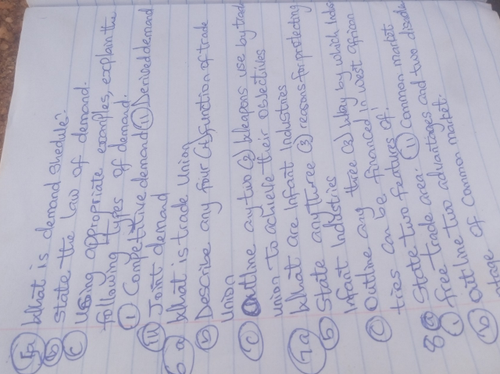 5a What is demand shedule?
b state the law of demand.
c using appropriate examples, explain the
following types of demand.
i Competitive demand ii Derived demand
iii Joint demand
6.a What is trade Union
b Describe any four (4) function of trade
union
c Outline any two (2) Weapons use by trade
union to achieve their objectives
7a What are Infant Industries
b State any three (3) reasons for protecting
Infant Industries
c Outline any three (3) way by which Indus
tries can be financed in west African
8a State two features of:
i Free trade area. ii Common market
b Outline two advantages and two disadv
tage of Common market.